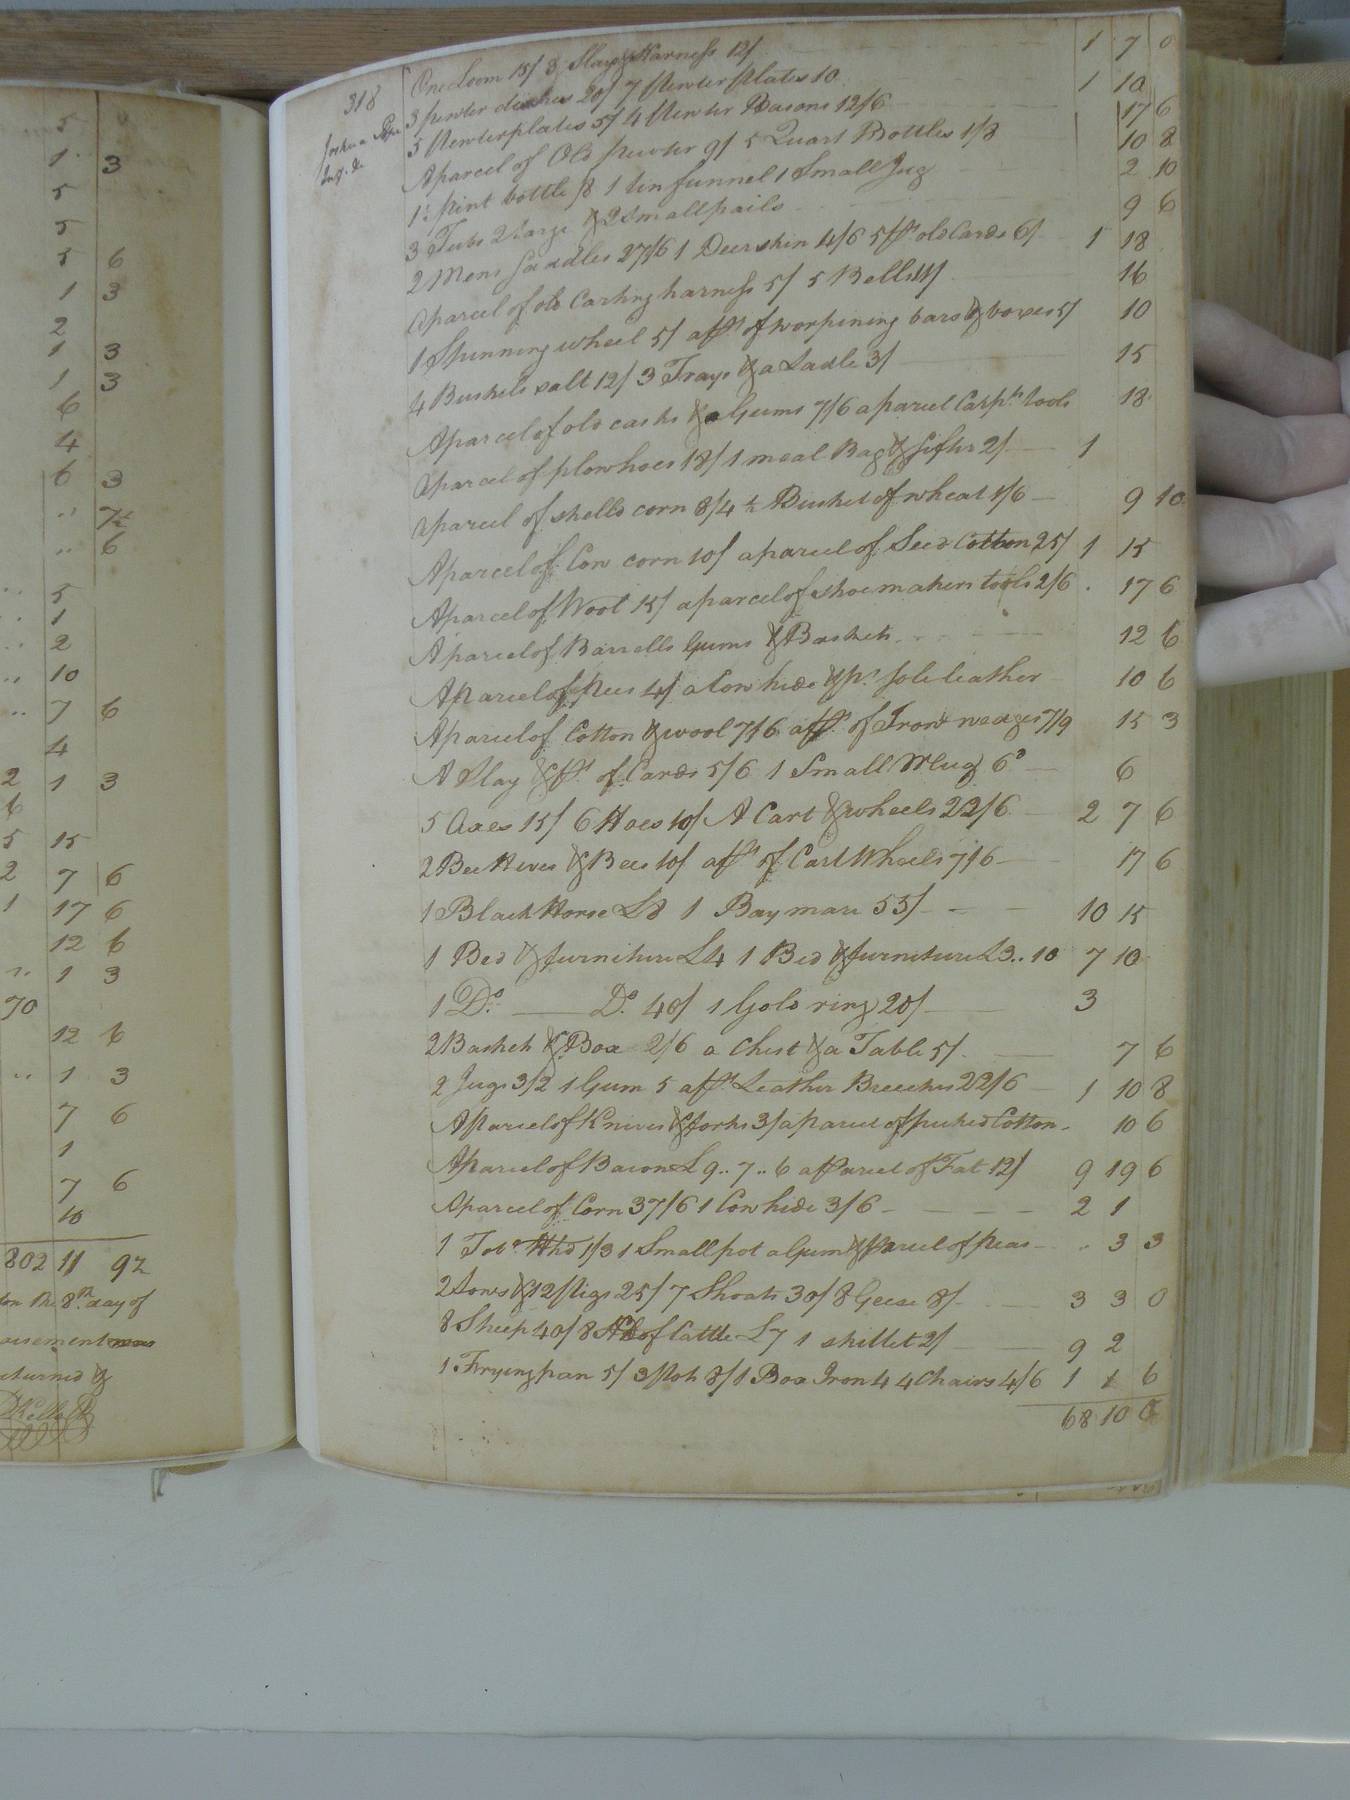 5
1 3
5
5
5 6
1 3
2
1 3
1 3
6
4
6 3
" 7½
" 6
" 5
" 1
" 2
" 10
" 7 6
4
2 1 3
6
5 15
2 7 6
1 17 6
12 6
" 1 3
70
12 6
" 1 3
7 6
1
7 6
10
802 11 9½
ton the 8th day of
aisement was
eturned &
318
Joshua
Inv. &c
One Loom 15/ 3 Slays & Harness 12/ 1 7 0
3 pewter dishes 20/ 7 Pewter plates 10 1 10
5 Pewter plates 5/ 4 Pewter Basons 12/6 17 6
A parcel of Old pewter 9/ 5 Quart Bottles 1/8 10 8
1 pint bottle /8 1 tin funnel 1 Small Jug 2 10
3 Tubs 2 large & 2 Small pails 9 6
2 Mens Saddles 27/6 1 Deerskin 4/6 5 pr old Cards 6/ 1 18
A parcel of old Carting harness 5/ 5 Bells 11/ 16
1 Spinning wheel 5/ a pr of worpining bars & boxes 5/ 10
4 Bushels salt 12/ 3 Trays & a Ladle 3/ 15
A parcel of old casks & a Gums 7/6 a parcel Carprs tools 18
A parcel of plowhoes 18/ 1 meal Bag & sifter 2/ 1
A parcel of shelld corn 8/4 ½ Bushel of wheat 1/6 9 10
A parcel of Cow corn 10/ a parcel of Seed Cotton 25/ 1 15
A parcel of Wool 15/ a parcel of shoemakers tools 2/6 . 17 6
A parcel of Barrells Gums & Baskets 12 6
A Parcel of Pees 4/ a Cow hide & pc sole leather 10 6
A parcel of Cotton & wool 7/6 a pr of Iron wedges 7/9 15 3
A Slay & pr of Cards 5/6 1 Small Mug 6d 6
5 Axes 15/ 6 Hoes 10/ A Cart & wheels 22/6 2 7 6
2 Bee Hives & Bees 10/ a pr of Cart Wheels 7/6 17 6
1 Black Horse £8 1 Bay mare 55/ 10 15
1 Bed & furniture £4 1 Bed & furniture £3..10 7 10
1 Do. Do. 40/ 1 Gold ring 20/ 3
2 Baskets & Box 2/6 a Chest & a Table 5/ 7 6
2 Jugs 3/2 1 Gum 5 a pr Leather Breeches 22/6 1 10 8
A Parcel of Knives & forks 3/ a parcel of picked Cotton 10 6
A Parcel of Bacon £9..7..6 a Parcel of Fat 12/ 9 19 6
A parcel of Corn 37/6 1 Cow hide 3/6 2 1
1 Tobo. Hhd 1/3 1 Small pot a Gum & Parcel of peas " 3 3
2 Sows & 12 Pigs 25/ 7 Shoats 30/ 8 Geese 8/ 3 3 0
8 Sheep 40/ 8 Hd of Cattle £7 1 skillet 2/ 9 2
1 Frying pan 5/ 3 Pots 8/ 1 Box Iron 4 4 Chairs 4/6 1 1 6
68 10 6